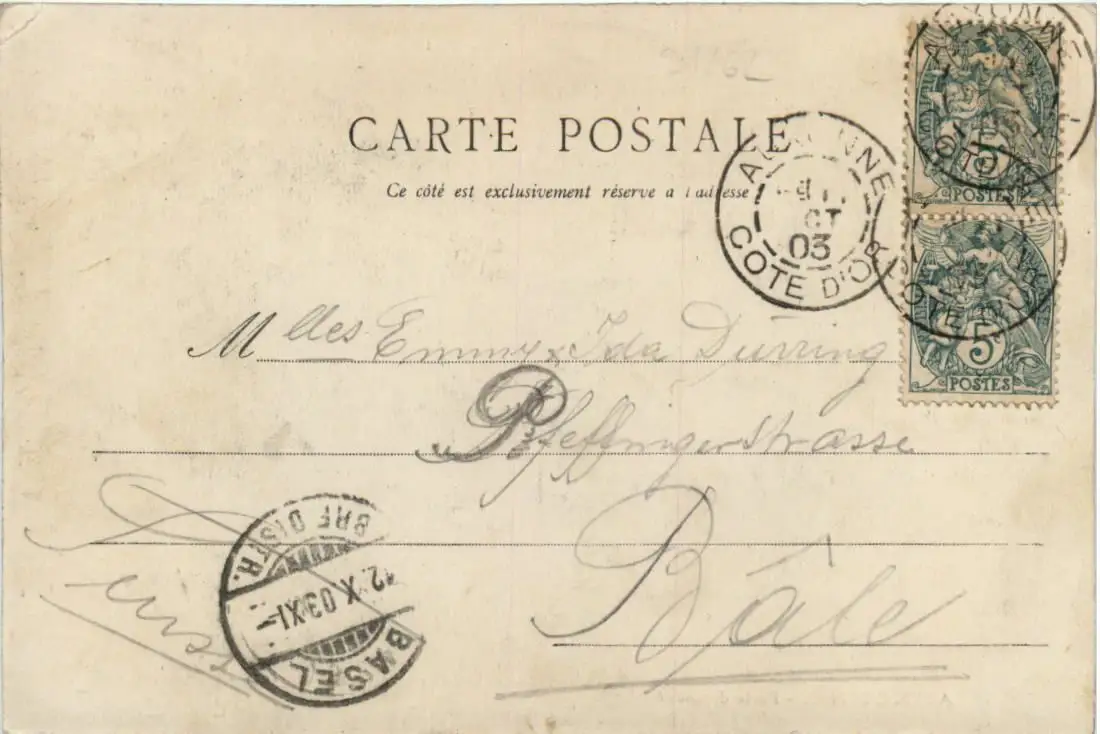 CARTE POSTALE
Ce côté est exclusivement réservé a l'adresse
AUXONNE
OCT
03
COTE D'OR
5
POSTES
5
POSTES
Mlles Emmy & Ida Dürring
Pfeffingerstrasse
Bâle
Suisse
BASEL
12.X.03.XI-
BRF. DISTR.